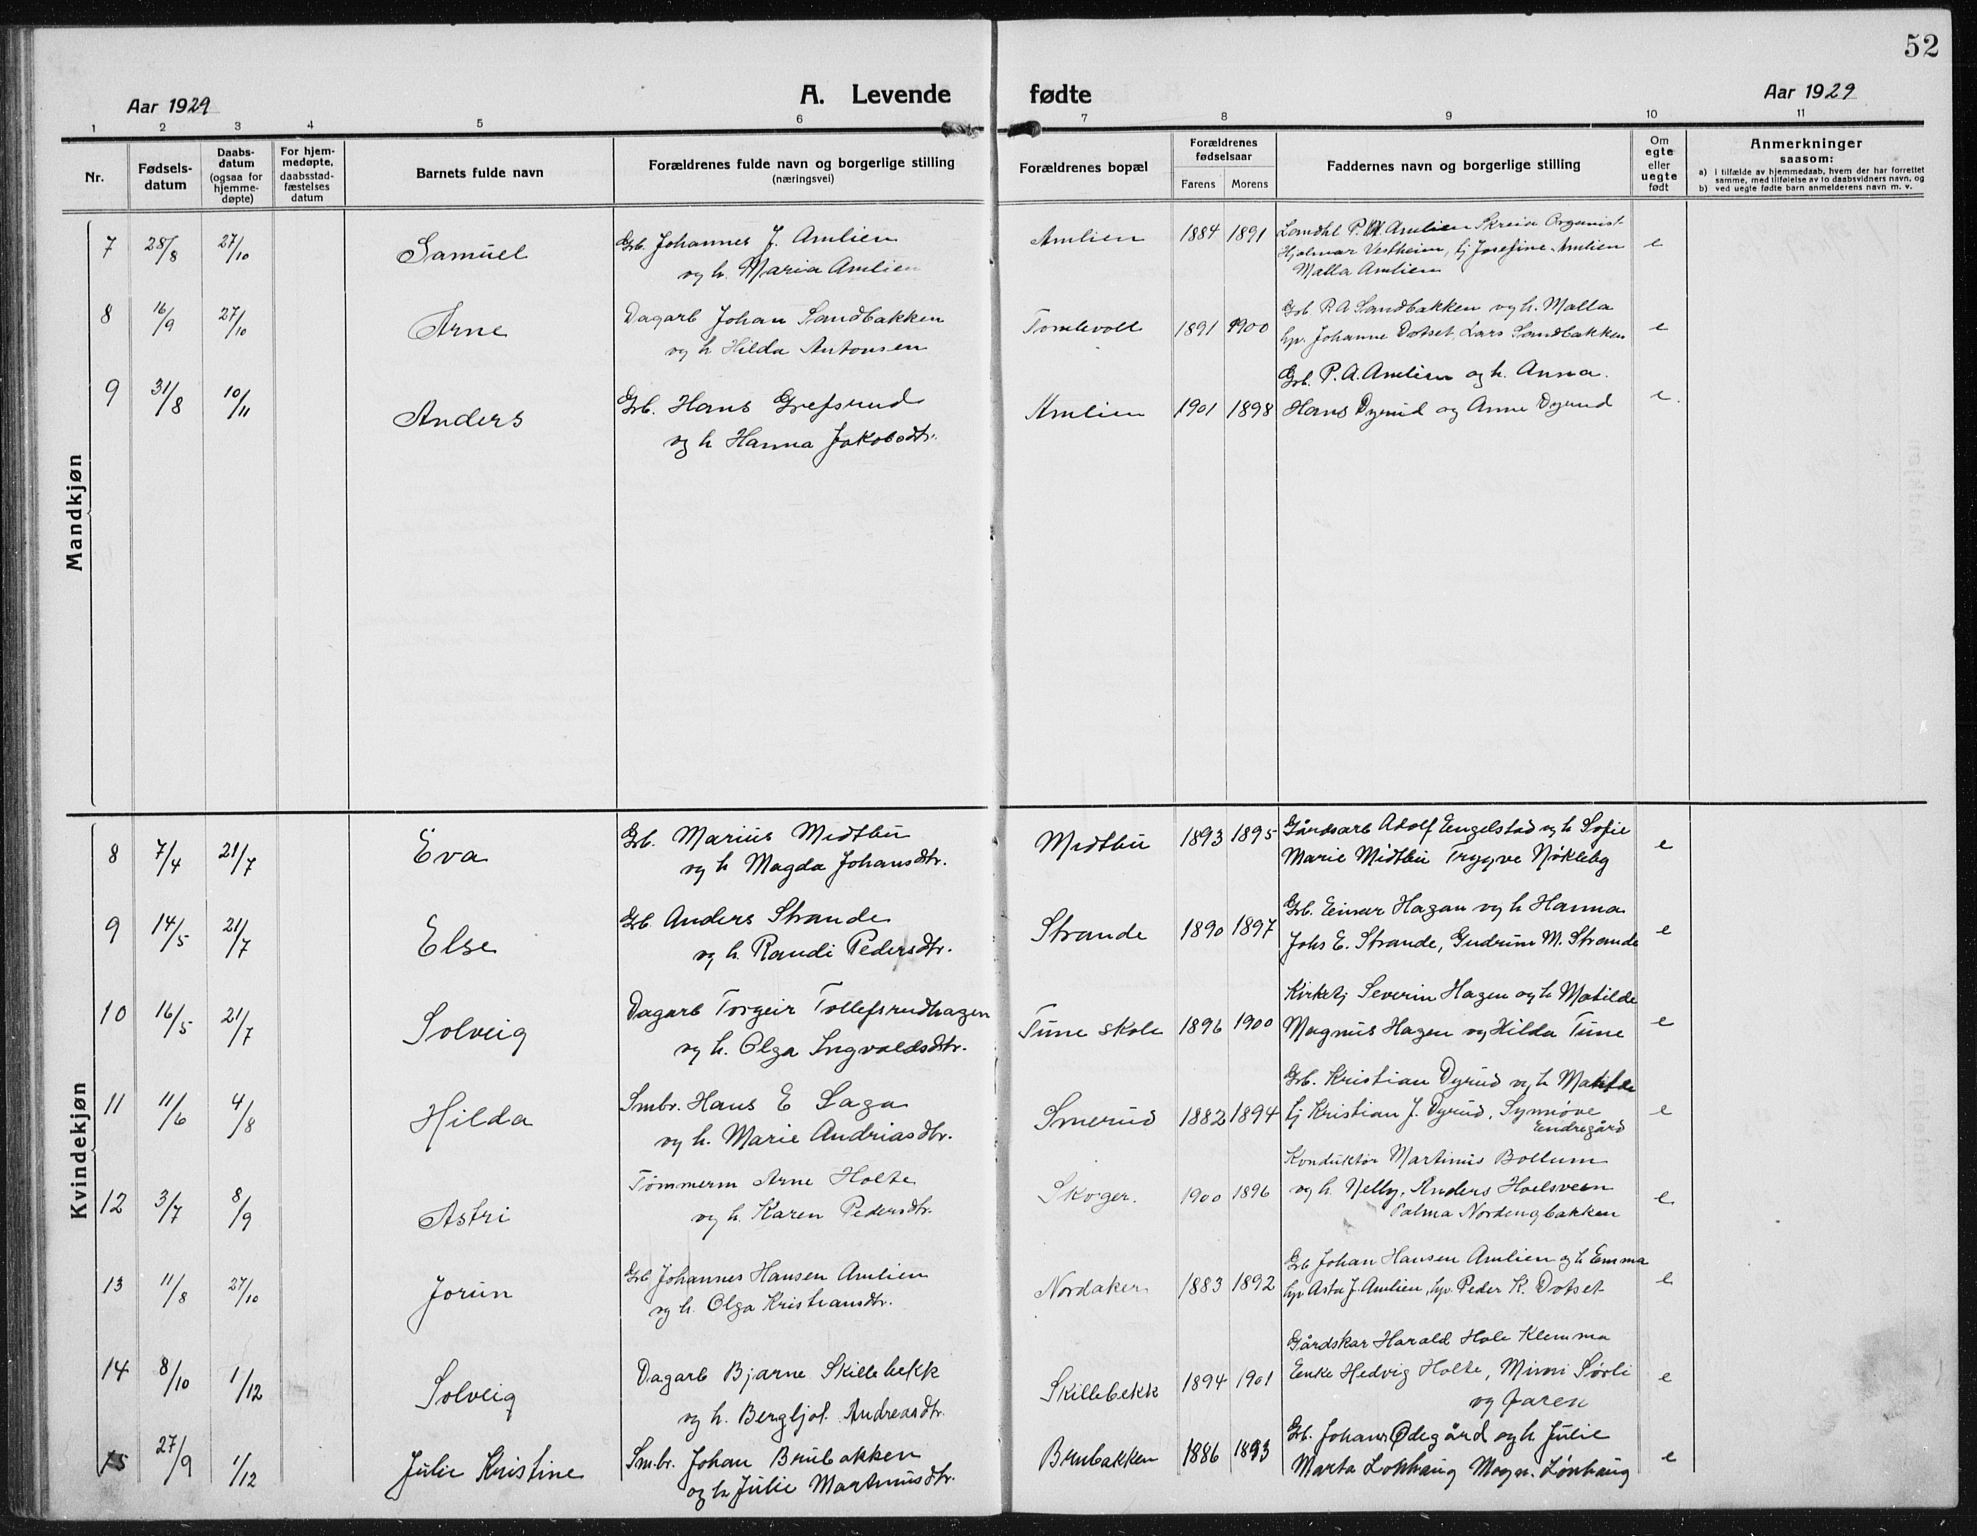 52
Aar 1929
A. Levende fødte
Aar 1929
1 2 3 4 5 6 7 8 9 10 11
Nr.
Fødsels-
datum
Daabs-
datum
(ogsaa for
hjemme-
døpte)
For hjem-
medøpte,
daabsstad-
fæstelses
datum
Barnets fulde navn
Forældrenes fulde navn og borgerlige stilling
(næringsvei)
Forældrenes bopæl
Forældrenes
fødselsaar
Farens Morens
Faddernes navn og borgerlige stilling
Om
egte
eller
uegte
født
Anmerkninger
saasom:
a) i tilfælde av hjemmedaab, hvem der har forrettet
samme, med tilføielse av to daabsvidners navn, og
b) ved uegte fødte barn anmelderens navn m. v.
Mandkjøn
7 28/8 27/10 Samuel Grb. Johannes J. Amlien Amlien 1884 1891 Landhl P. A Amlien Skreia Organist e
og h. Maria Amlien Hjalmar Vestheim, tj Josefine Amlien
Malla Amlien
8 16/9 27/10 Arne Dagarb Johan Sandbakken Tomlevoll 1891 1900 Grb P. A Sandbakken og h. Malla e
og h Hilda Antonsen hp. Johanne Dotset, Lars Sandbakken
9 31/8 10/11 Anders Grb. Hans Grefsrud Amlien 1901 1898 Grb. P. A. Amlien og h. Anna. e.
og h Hanna Jakobsdtr. Hans Dyrud og Anne Dyrud
Kvindekjøn
8 7/4 21/7 Eva Grb. Marius Midtbu Midtbu 1893 1895 Gårdsarb Adolf Engelstad og h Sofie e
og h Magda Johansdtr. Marie Midtbu Trygve Nøkleby
9 14/5 21/7 Else Grb. Anders Strande Strande 1890 1897 Grb. Einar Hagan og h Hanna e
og h. Randi Pedersdtr. Johs E. Strande, Gudrun M. Strande
10 16/5 21/7 Solveig Dagarb Torgeir Tollefsrudhagen Tune skole 1896 1900 Kirketj Severin Hagen og h Matilde e
og h. Olga Ingvaldsdtr. Magnus Hagen og Hilda Tune
11 11/6 4/8 Hilda Smbr. Hans E Saga Smerud 1882 1894 Grb. Kristian Dyrud og h Matilde e
og h. Marie Andriasdtr. tj Kristian J. Dyrud, Synnøve
Endregård
12 3/7 8/9 Astri Tømmerm Arne Holte Skoger. 1900 1896 Konduktør Martinus Bollum e
og h. Karen Pedersdtr. og h. Nelly, Anders Hoelsveen
Palma Nordengbakken
13 11/8 27/10 Jorun Grb Johannes Hansen Amlien Nordaker 1883 1892 Grb Johan Hansen Amlien og h Emma e
og h. Olga Kristiansdtr. hp. Asta J. Amlien, hp. Peder K. Dotset
14 8/10 1/12 Solveig Dagarb Bjarne Skillebekk Skillebekk 1894 1901 Gårdskar Harald Hole Klemma e
og h. Bergljot Andreasdtr. Enke Hedvig Holte, Mimi Sørli
og faren
15 27/9 1/12 Julie Kristine Smbr. Johan Brubakken Brubakken 1886 1893 Grb. Johans Ødegård og h Julie e
og h Julie Martinusdtr. Marta Lønhaug Magn. Lønhaug